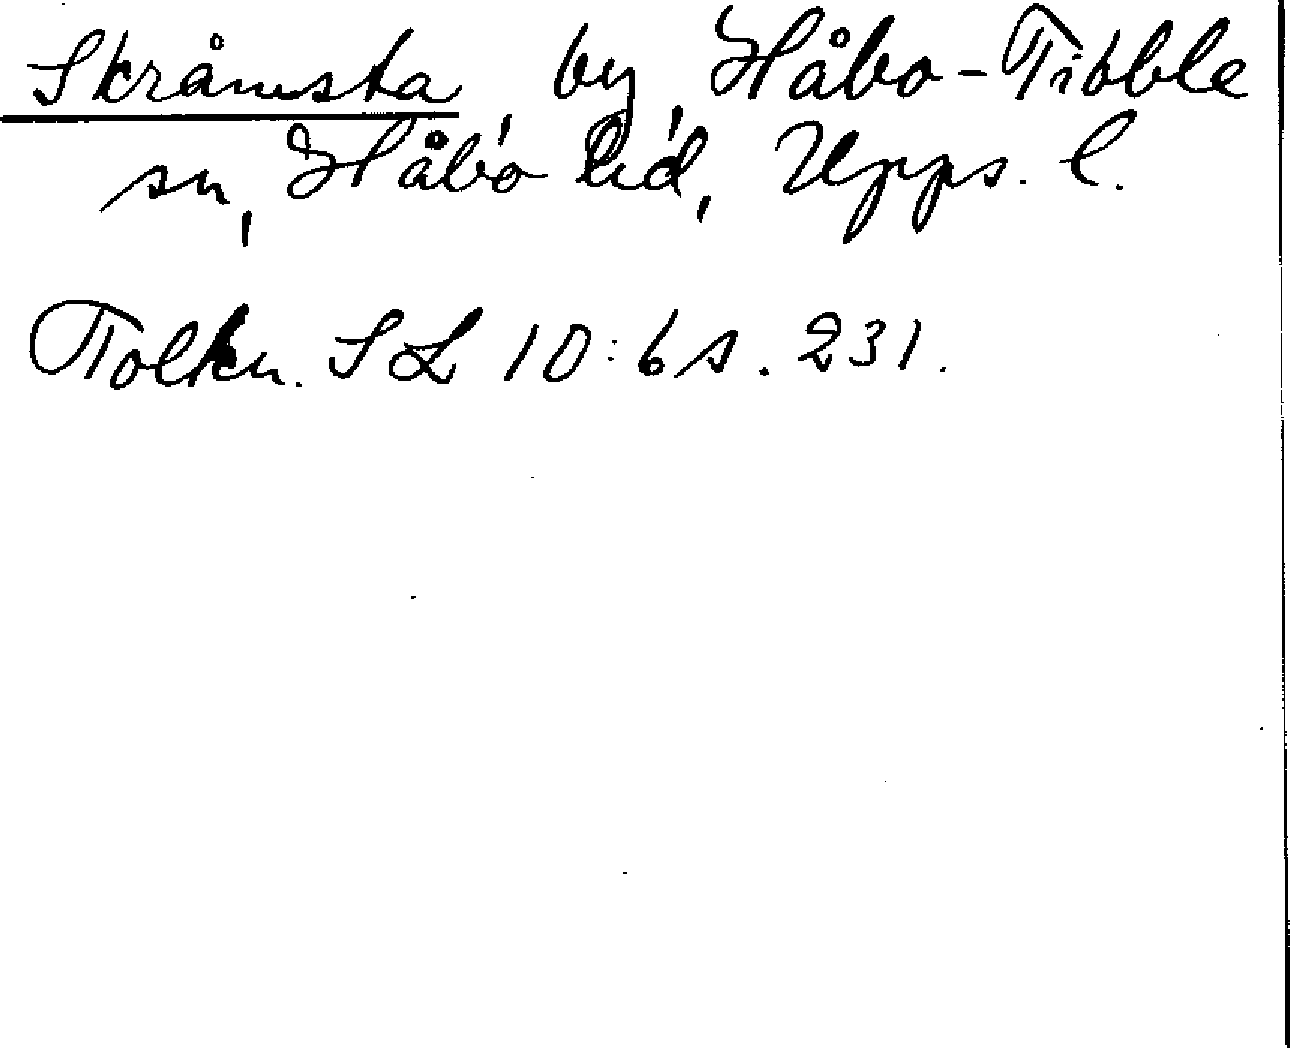 Skråmsta, by, Håbo-Tibble
sn, Håbo hd, Upps. l.
Tolkn. SL 10:6 s. 231.